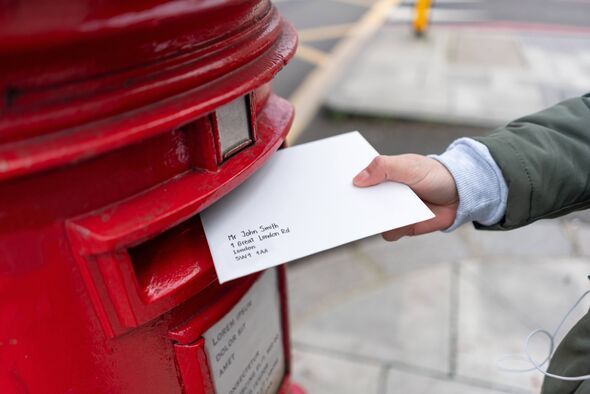 Mr John Smith
9 Great London Rd
London
SW9 9AA
LOREM IPSUM
DOLOR SIT
AMET
CONSECTETUR